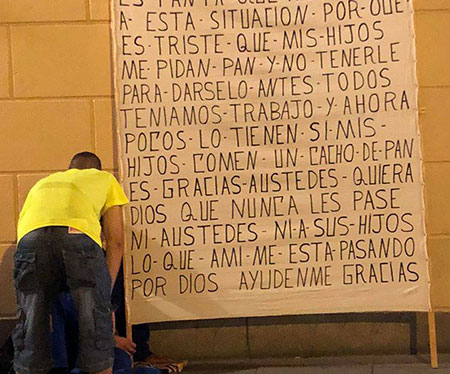 A·ESTA·SITUACION·POR·QUE
ES·TRISTE·QUE·MIS·HIJOS
ME·PIDAN·PAN·Y·NO·TENERLE
PARA·DARSELO·ANTES·TODOS
TENIAMOS·TRABAJO·Y·AHORA
POCOS·LO·TIENEN·SI·MIS·
HIJOS·COMEN·UN·CACHO·DE·PAN
ES·GRACIAS·AUSTEDES·QUIERA
DIOS QUE NUNCA LES PASE
NI·AUSTEDES·NI·A·SUS·HIJOS
LO·QUE·AMI·ME·ESTA·PASANDO
POR DIOS AYUDENME GRACIAS